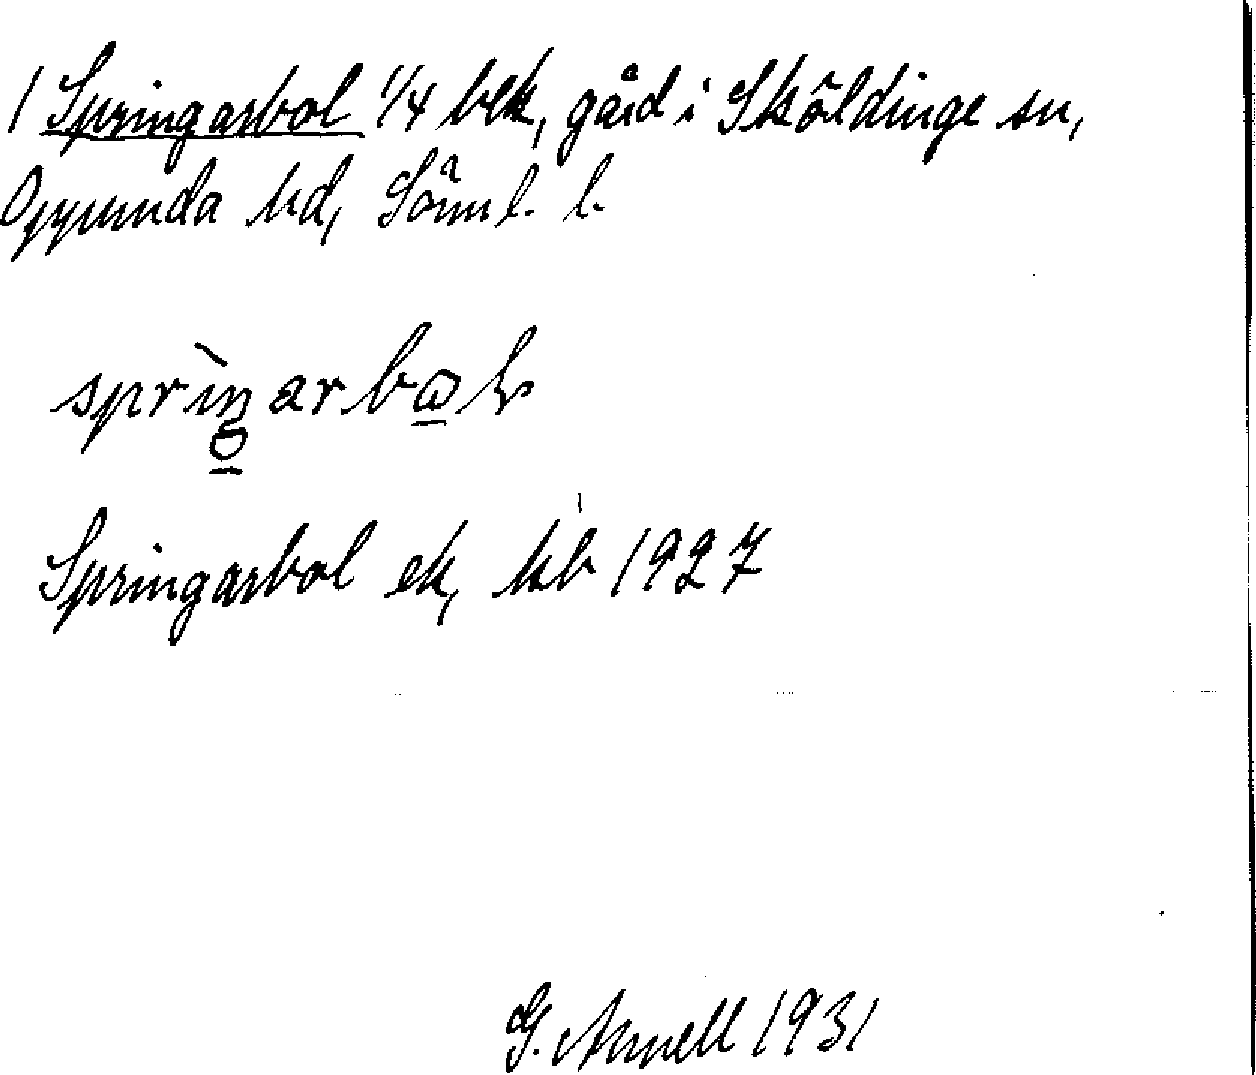 1 Springarbol 1/4 blk, gård i Sköldinge sn,
Oppunda hd, Sörml. l.
springarbol
Springarbol ek, kb 1927
G. Annell 1931